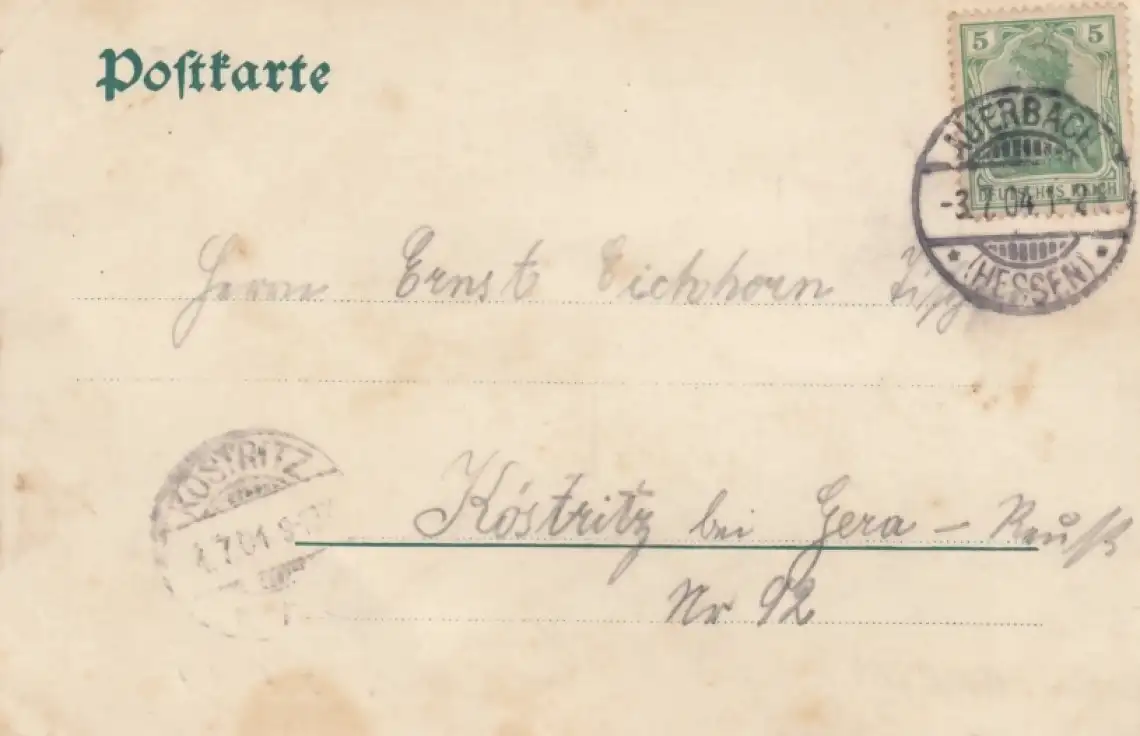 Postkarte
5 5
DEUTSCHES REICH
AUERBACH
-3.7.04.1-2N
* (HESSEN) *
Herrn Ernst Eichhorn
KÖSTRITZ
4.7.04
Köstritz bei Gera - Reuß
Nr 92